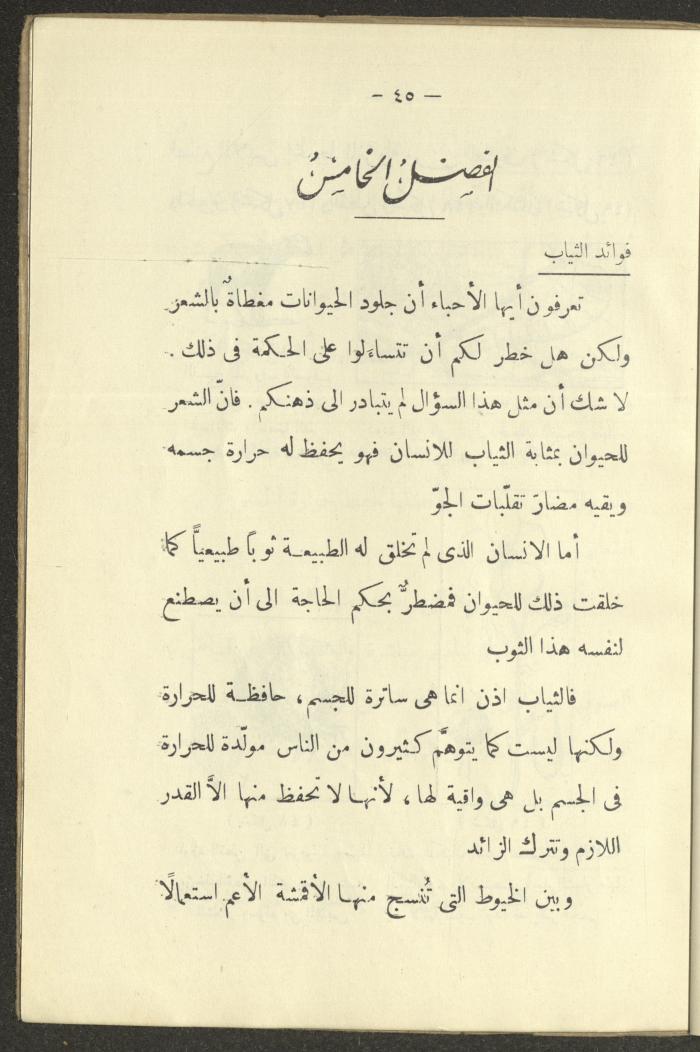 — ٤٥ —
الفصل الخامس
فوائد الثياب
تعرفون أيها الأحباء أن جلود الحيوانات مغطاةٌ بالشعر
ولكن هل خطر لكم أن تتساءَلوا على الحكمة فى ذلك .
لا شك أن مثل هذا السؤال لم يتبادر الى ذهنكم . فانّ الشعر
للحيوان بمثابة الثياب للانسان فهو يحفظ له حرارة جسمه
ويقيه مضارّ تقلّبات الجوّ
أما الانسان الذى لم تخلق له الطبيعة ثوباً طبيعيًّا كما
خلقت ذلك للحيوان فمضطرٌّ بحكم الحاجة الى أن يصطنع
لنفسه هذا الثوب
فالثياب اذن انما هى ساترة للجسم ، حافظة للحرارة
ولكنها ليست كما يتوهَّم كثيرون من الناس مولّدة للحرارة
فى الجسم بل هى واقية لها ، لأنها لا تحفظ منها الاَّ القدر
اللازم وتترك الزائد
وبين الخيوط التى تُنسج منها الأقمشة الأعم استعمالًا